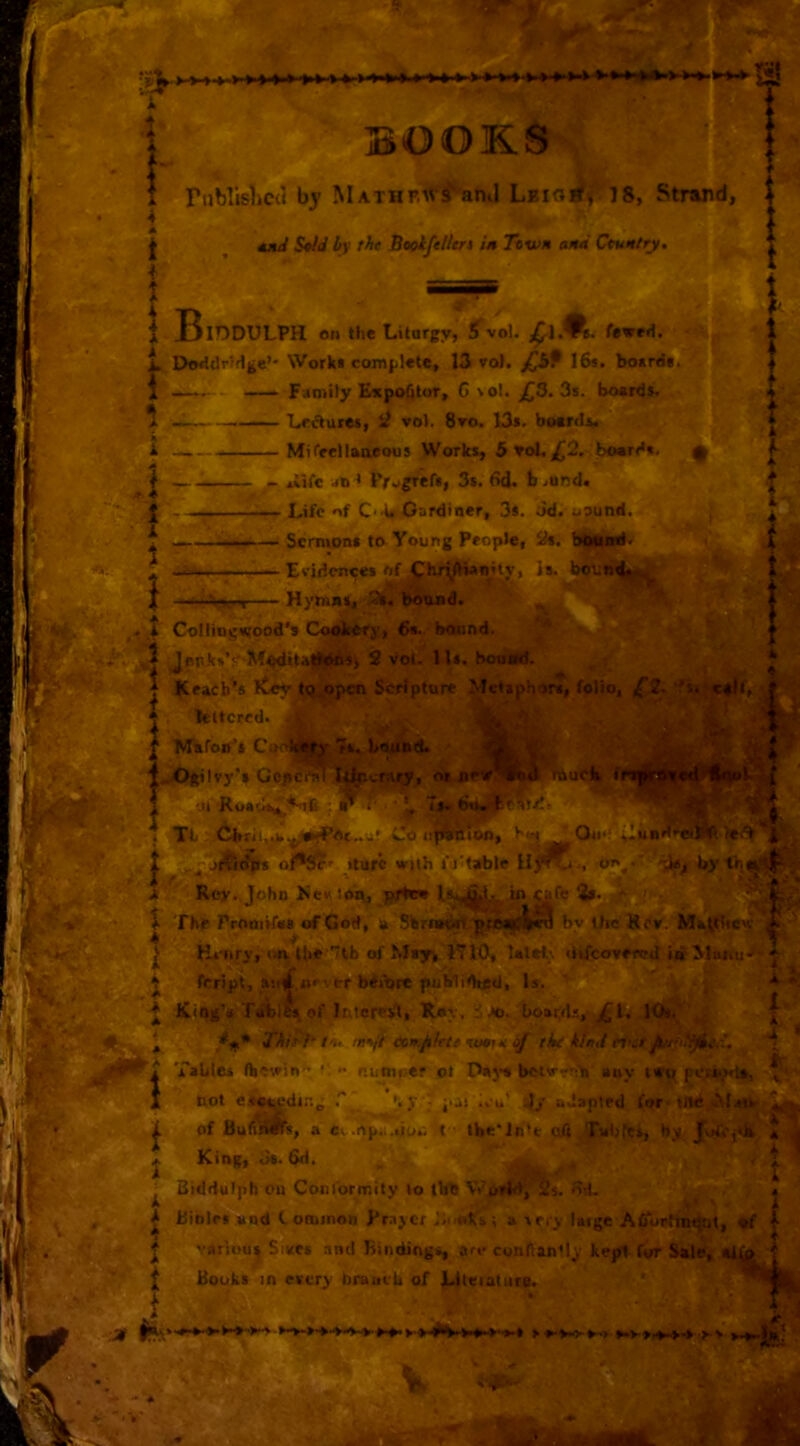 BOOKS
Publiſhed by MATHEWS and LEIGH, 18, Strand,
and Sold by the Bookſellers in Town and Country.
BIDDULPH on the Liturgy, 5 vol. ſewed.
Works complete, 13 vol. 16s. boards.
—— —— Family Expoſitor, 6 vol. £3. 3s. boards.
—— —— Lectures, 2 vol. 8vo. 13s. boards.
—— —— Miſcellaneous Works, 5 vol. £2. boards.
—— —— 3s. 6d. bound.
—— —— Life of Gardiner, 3s. bound.
—— —— Sermons to Young People, 2s. bound.
—— —— Evidences of Chriſtianity, 1s. bound.
—— —— Hymns, bound.
Collingwood's Cookery, 6s. bound.
Meditations, 2 vol. 11s. bound.
Keach's Key to open Scripture Metaphors, folio, £2. calf,
lettered.
Maſon's Cookery 7s. bound.
Ogilvy's General Itinerary, or new and much improved Book
Roads, 7s. 6d. bound.
Companion, One Hundred
with ſuitable Hymns, by the
Rev. John Newton, price in calf 2s.
The Promiſes of God, a Sermon preached by the Rev. Matthew
Henry, on the 7th of May, 1710, lately diſcovered in Manu-
ſcript, and never before publiſhed, 1s.
King's Tables of Intereſt, boards, £1. 10s.
*⁎* complete work of the kind ever
Tables ſhewing number of Days between any two periods,
not exceeding adapted for the Man
of Buſineſs, the Tables, by Joſeph
King, 3s. 6d.
Biddulph on Conformity to the World, 2s. 6d.
Bibles and Common Prayer Books; a very large Aſſortment, of
various Sizes and Bindings, are conſtantly kept for Sale, alſo
Books in every branch of Literature.